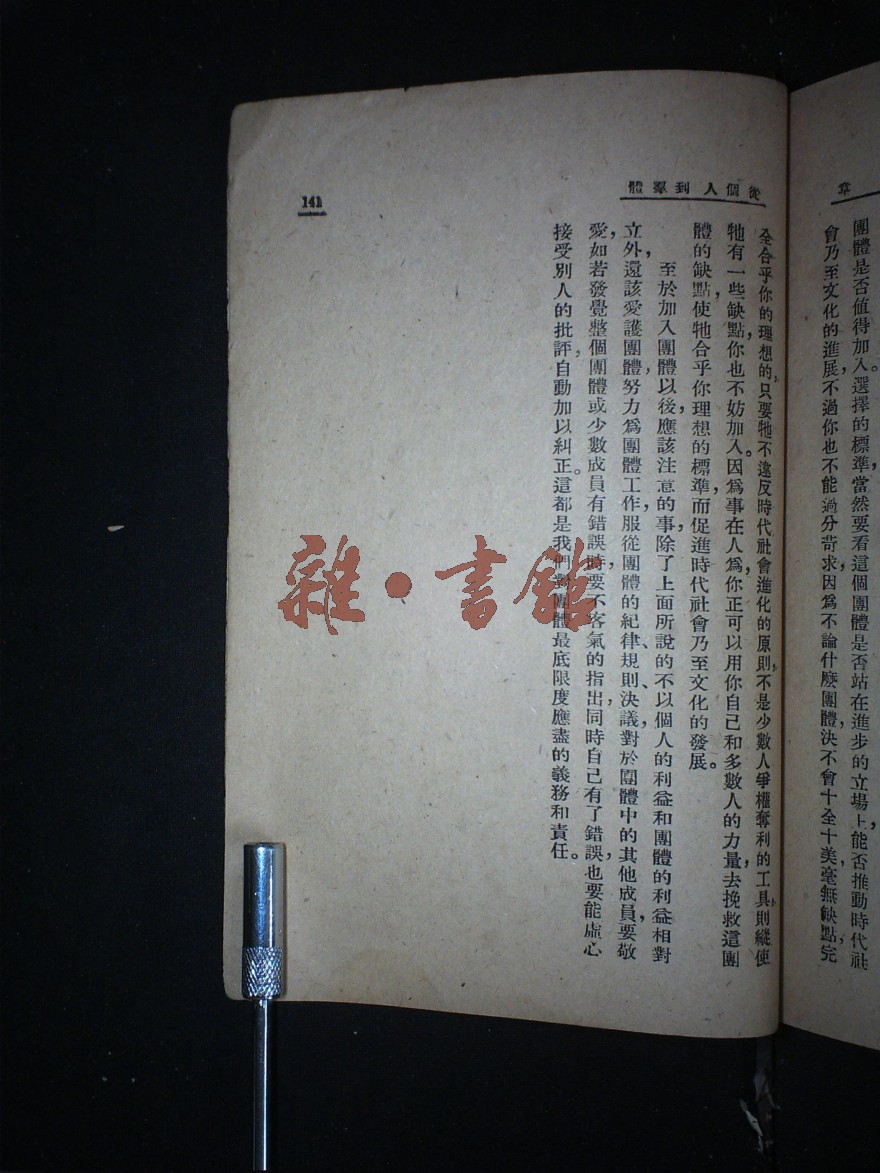 章
團體是否值得加入。選擇的標準，當然要看這個團體是否站在進步的立場上，能否推動時代社
會乃至文化的進展，不過你也不能過分苛求，因爲不論什麽團體，決不會十全十美，毫無缺點，完
從個人到羣體
全合乎你的理想的，只要牠不違反時代社會進化的原則，不是少數人爭權奪利的工具，則縱使
牠有一些缺點，你也不妨加入。因爲事在人爲，你正可以用你自己和多數人的力量，去挽救這團
體的缺點，使牠合乎你理想的標準，而促進時代社會乃至文化的發展。
至於加入團體以後，應該注意的事，除了上面所說的不以個人的利益和團體的利益相對
立外，還該愛護團體，努力爲團體工作，服從團體的紀律、規則、決議，對於團體中的其他成員，要敬
愛，如若發覺整個團體或少數成員有錯誤時，要不客氣的指出，同時自己有了錯誤，也要能虛心
接受別人的批評，自動加以糾正。這都是我們對團體最底限度應盡的義務和責任。
141
雜·書館